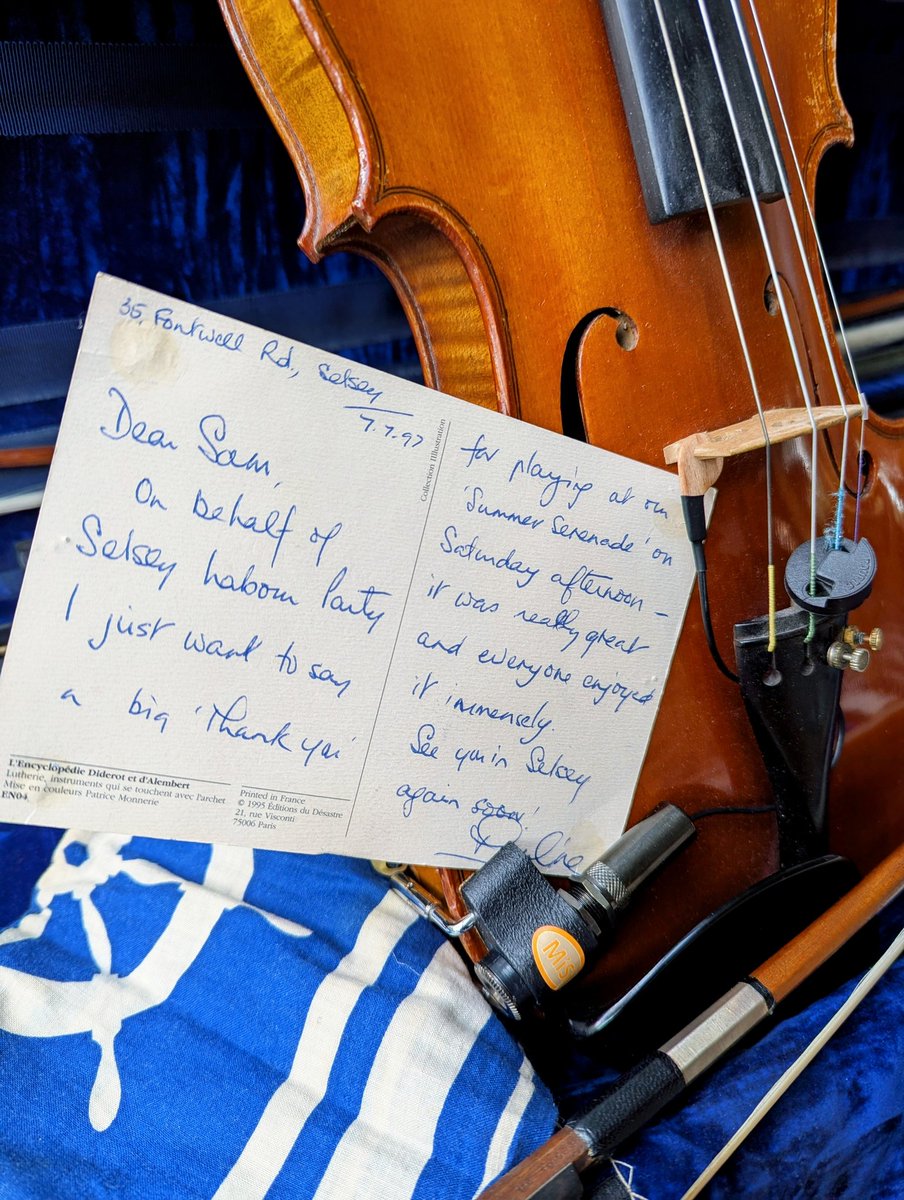 35, Fontwell Rd., Selsey
7.7.97
Dear Sam,
On behalf of
Selsey Labour Party
I just want to say
a big 'Thank you'
for playing at our
'Summer Serenade' on
Saturday afternoon –
it was really great
and everyone enjoyed
it immensely.
See you in Selsey
again soon!
Collection Illustration
L'Encyclopédie Diderot et d'Alembert
Lutherie, instruments qui se touchent avec l'archet
Mise en couleurs Patrice Monnerie
EN04
Printed in France
© 1995 Éditions du Désastre
21, rue Visconti
75006 Paris
Mis